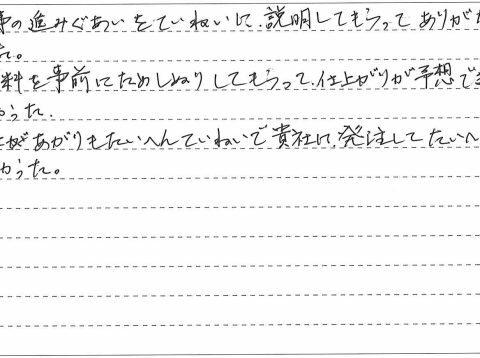 事の進みぐあいをていねいに、説明してもらって ありがた
た。
料を事前にためしぬり してもらって、仕上がりが予想でき
かった.
上があがりもたいへんていねいで貴社に、発注してたいへ
かった。